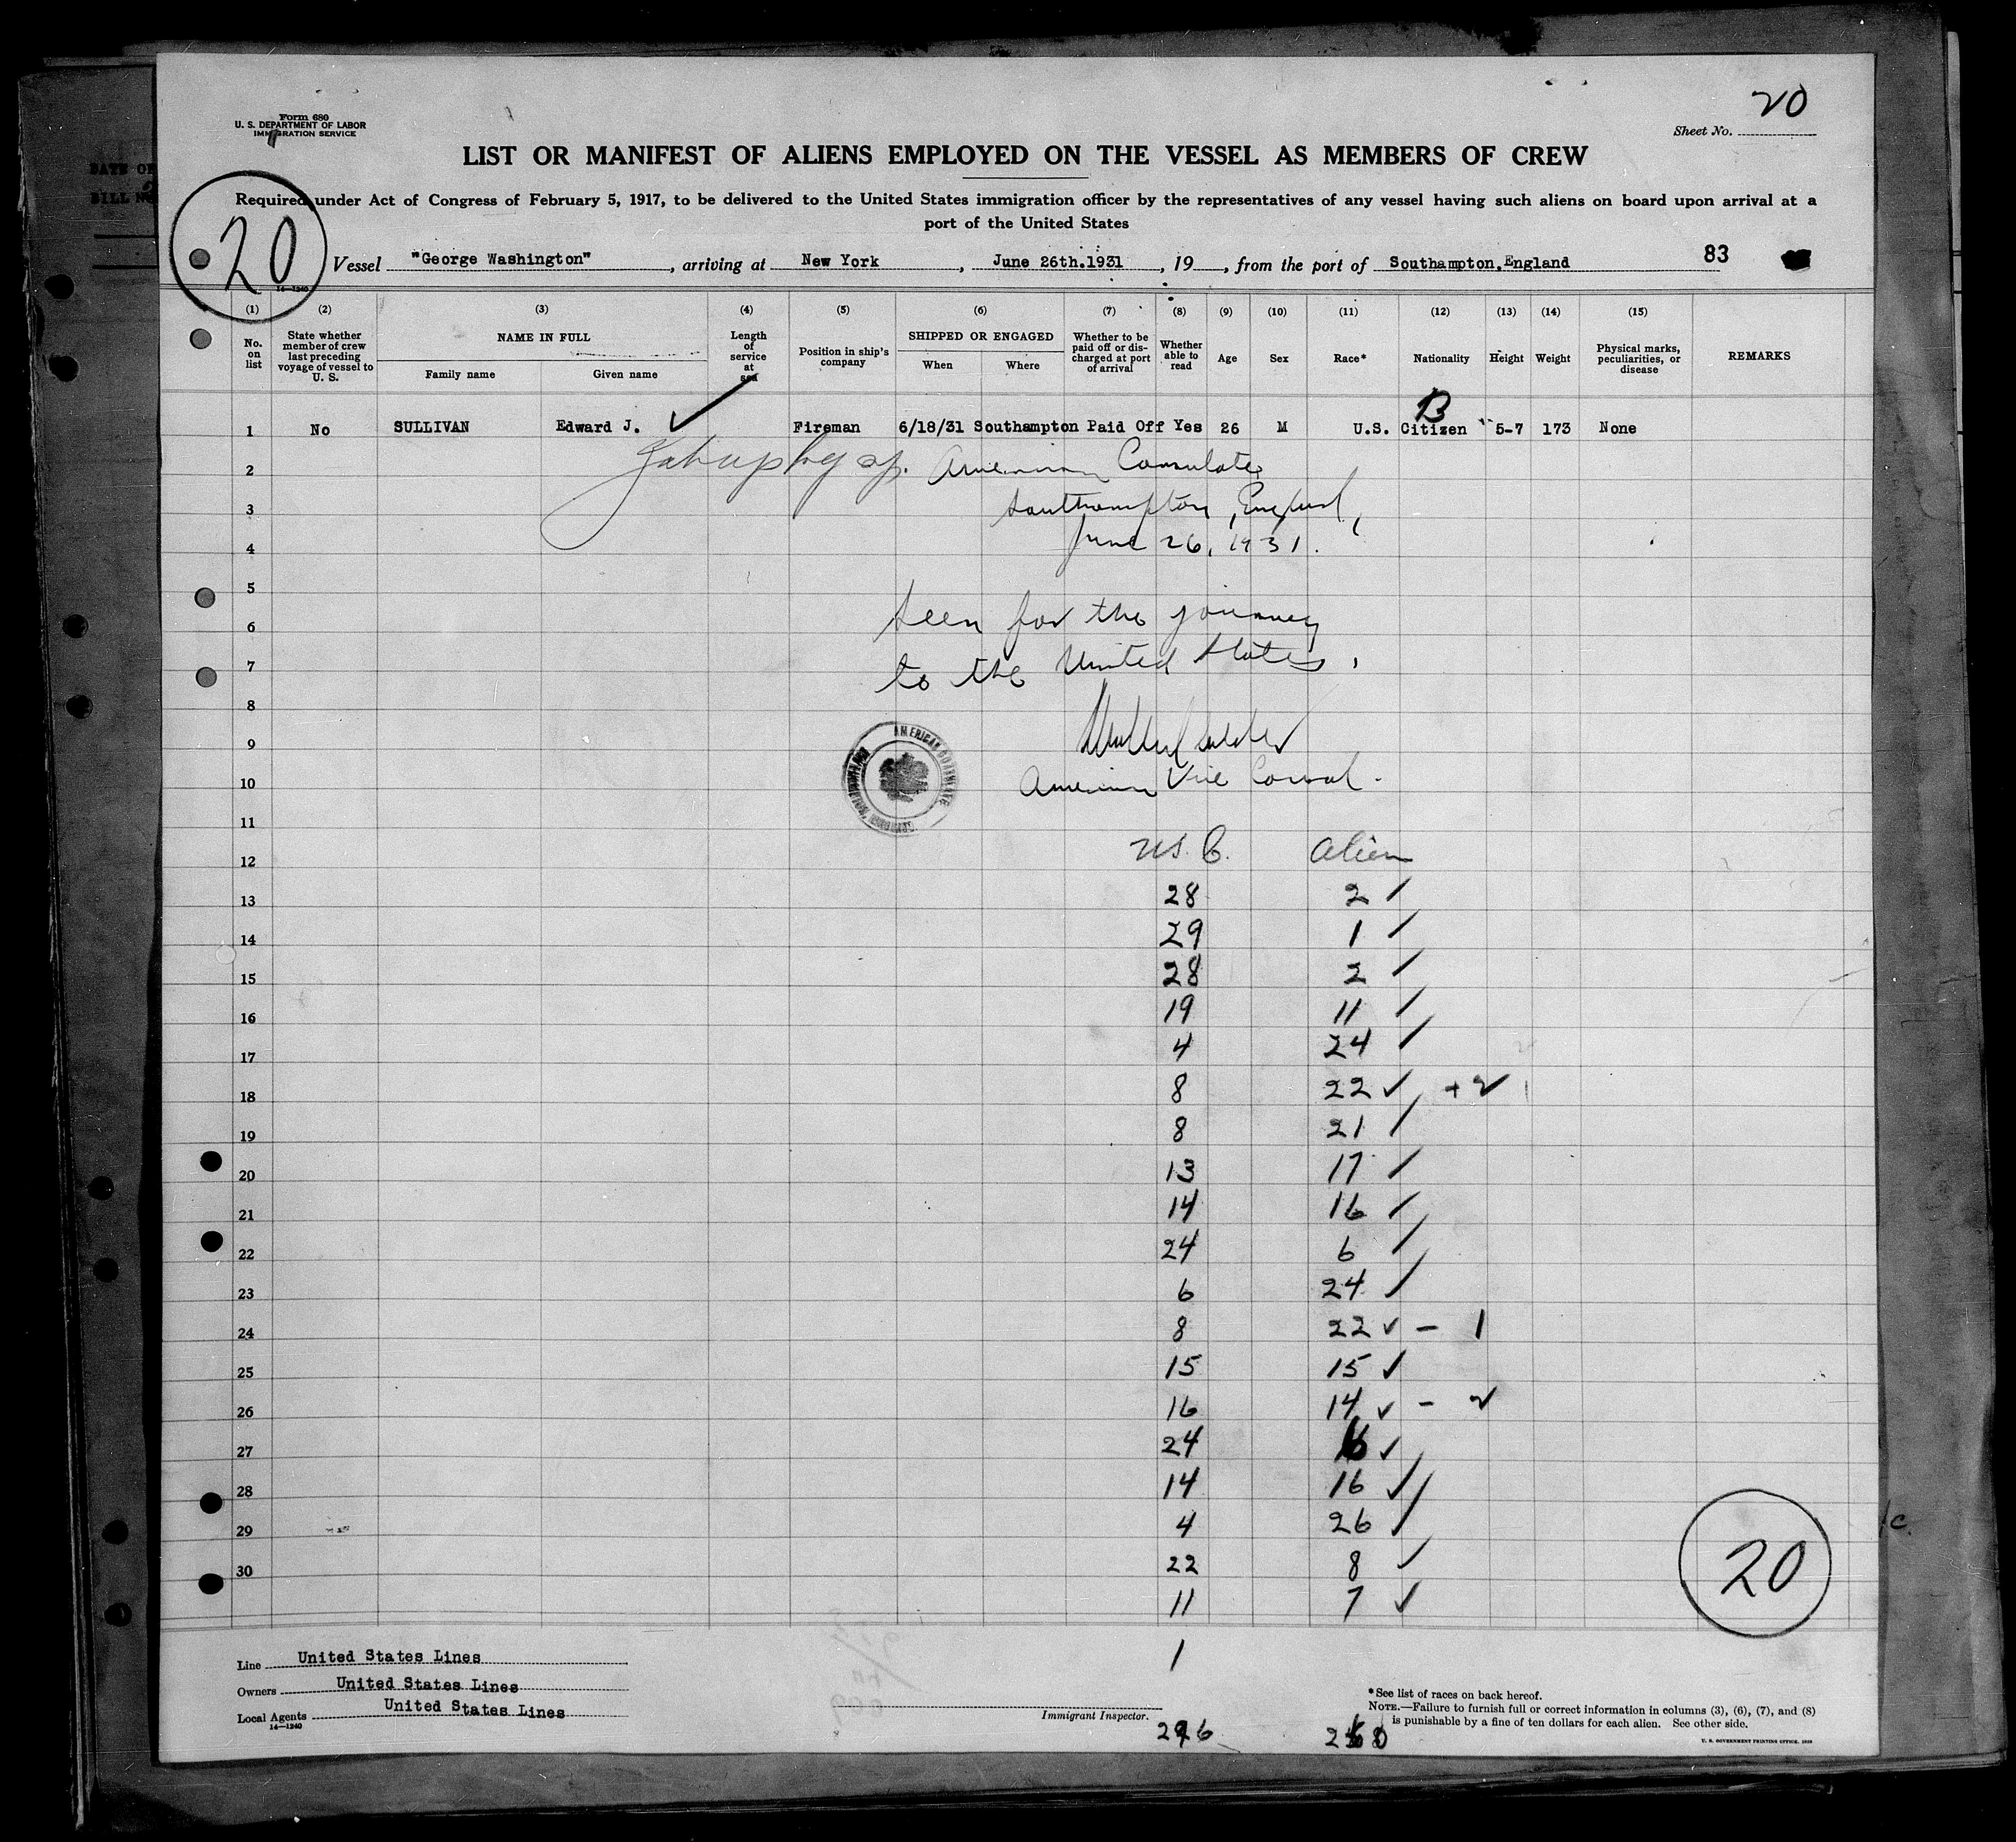 Form 680
U. S. DEPARTMENT OF LABOR
IMMIGRATION SERVICE
20
Sheet No.
LIST OR MANIFEST OF ALIENS EMPLOYED ON THE VESSEL AS MEMBERS OF CREW
Required under Act of Congress of February 5, 1917, to be delivered to the United States immigration officer by the representatives of any vessel having such aliens on board upon arrival at a
port of the United States
20
Vessel "George Washington", arriving at New York, June 26th.1931, 19, from the port of Southampton,England 83
14—1240
(1) (2) (3) (4) (5) (6) (7) (8) (9) (10) (11) (12) (13) (14) (15)
No. on list
State whether member of crew last preceding voyage of vessel to U. S.
NAME IN FULL
Family name
Given name
Length of service at sea
Position in ship's company
SHIPPED OR ENGAGED
When
Where
Whether to be paid off or discharged at port of arrival
Whether able to read
Age
Sex
Race*
Nationality
Height
Weight
Physical marks, peculiarities, or disease
REMARKS
B
1 No SULLIVAN Edward J. ✓ Fireman 6/18/31 Southampton Paid Off Yes 26 M U.S. Citizen 5-7 173 None
2 American Consulate
3 Southampton, England,
4 June 26, 1931.
5
6 Seen for the journey
7 to the United States.
8
9
10 American Vice Consul.
AMERICAN CONSULATE
11
12 U.S. C. Alien
13 28 2 /
14 29 1 /
15 28 2 /
16 19 11 /
17 4 24 /
18 8 22 ✓ + 2
19 8 21 /
20 13 17 /
21 14 16 /
22 24 6 /
23 6 24 /
24 8 22 ✓ - 1
25 15 15 ✓
26 16 14 ✓ - 2
27 24 6 ✓
28 14 16 ✓
29 4 26 /
30 22 8 ✓
11 7 ✓
1
20
Line United States Lines
Owners United States Lines
Local Agents United States Lines
14—1240
Immigrant Inspector.
*See list of races on back hereof.
NOTE.—Failure to furnish full or correct information in columns (3), (6), (7), and (8)
is punishable by a fine of ten dollars for each alien. See other side.
U. S. GOVERNMENT PRINTING OFFICE